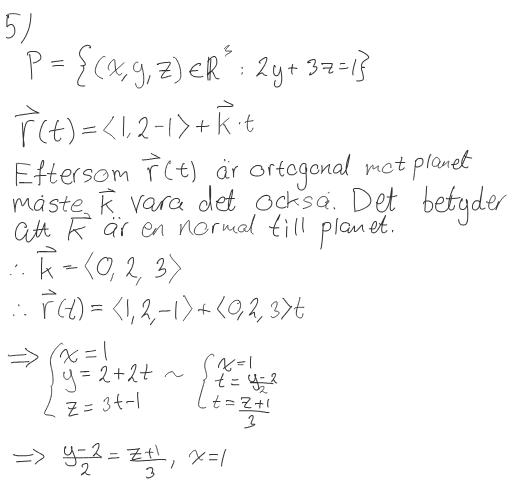 5)
P = {(x, y, z) ∈ ℝ³ : 2y + 3z = 1}
r⃗(t) = ⟨1, 2 -1⟩ + k⃗ · t
Eftersom r⃗(t) är ortogonal mot planet
måste k⃗ vara det också. Det betyder
att k⃗ är en normal till planet.
∴ k⃗ = ⟨0, 2, 3⟩
∴ r⃗(t) = ⟨1, 2, -1⟩ + ⟨0, 2, 3⟩t
⇒ { x = 1 ~ { x = 1
y = 2 + 2t t = (y-2)/2
z = 3t - 1 t = (z+1)/3
⇒ (y-2)/2 = (z+1)/3, x = 1